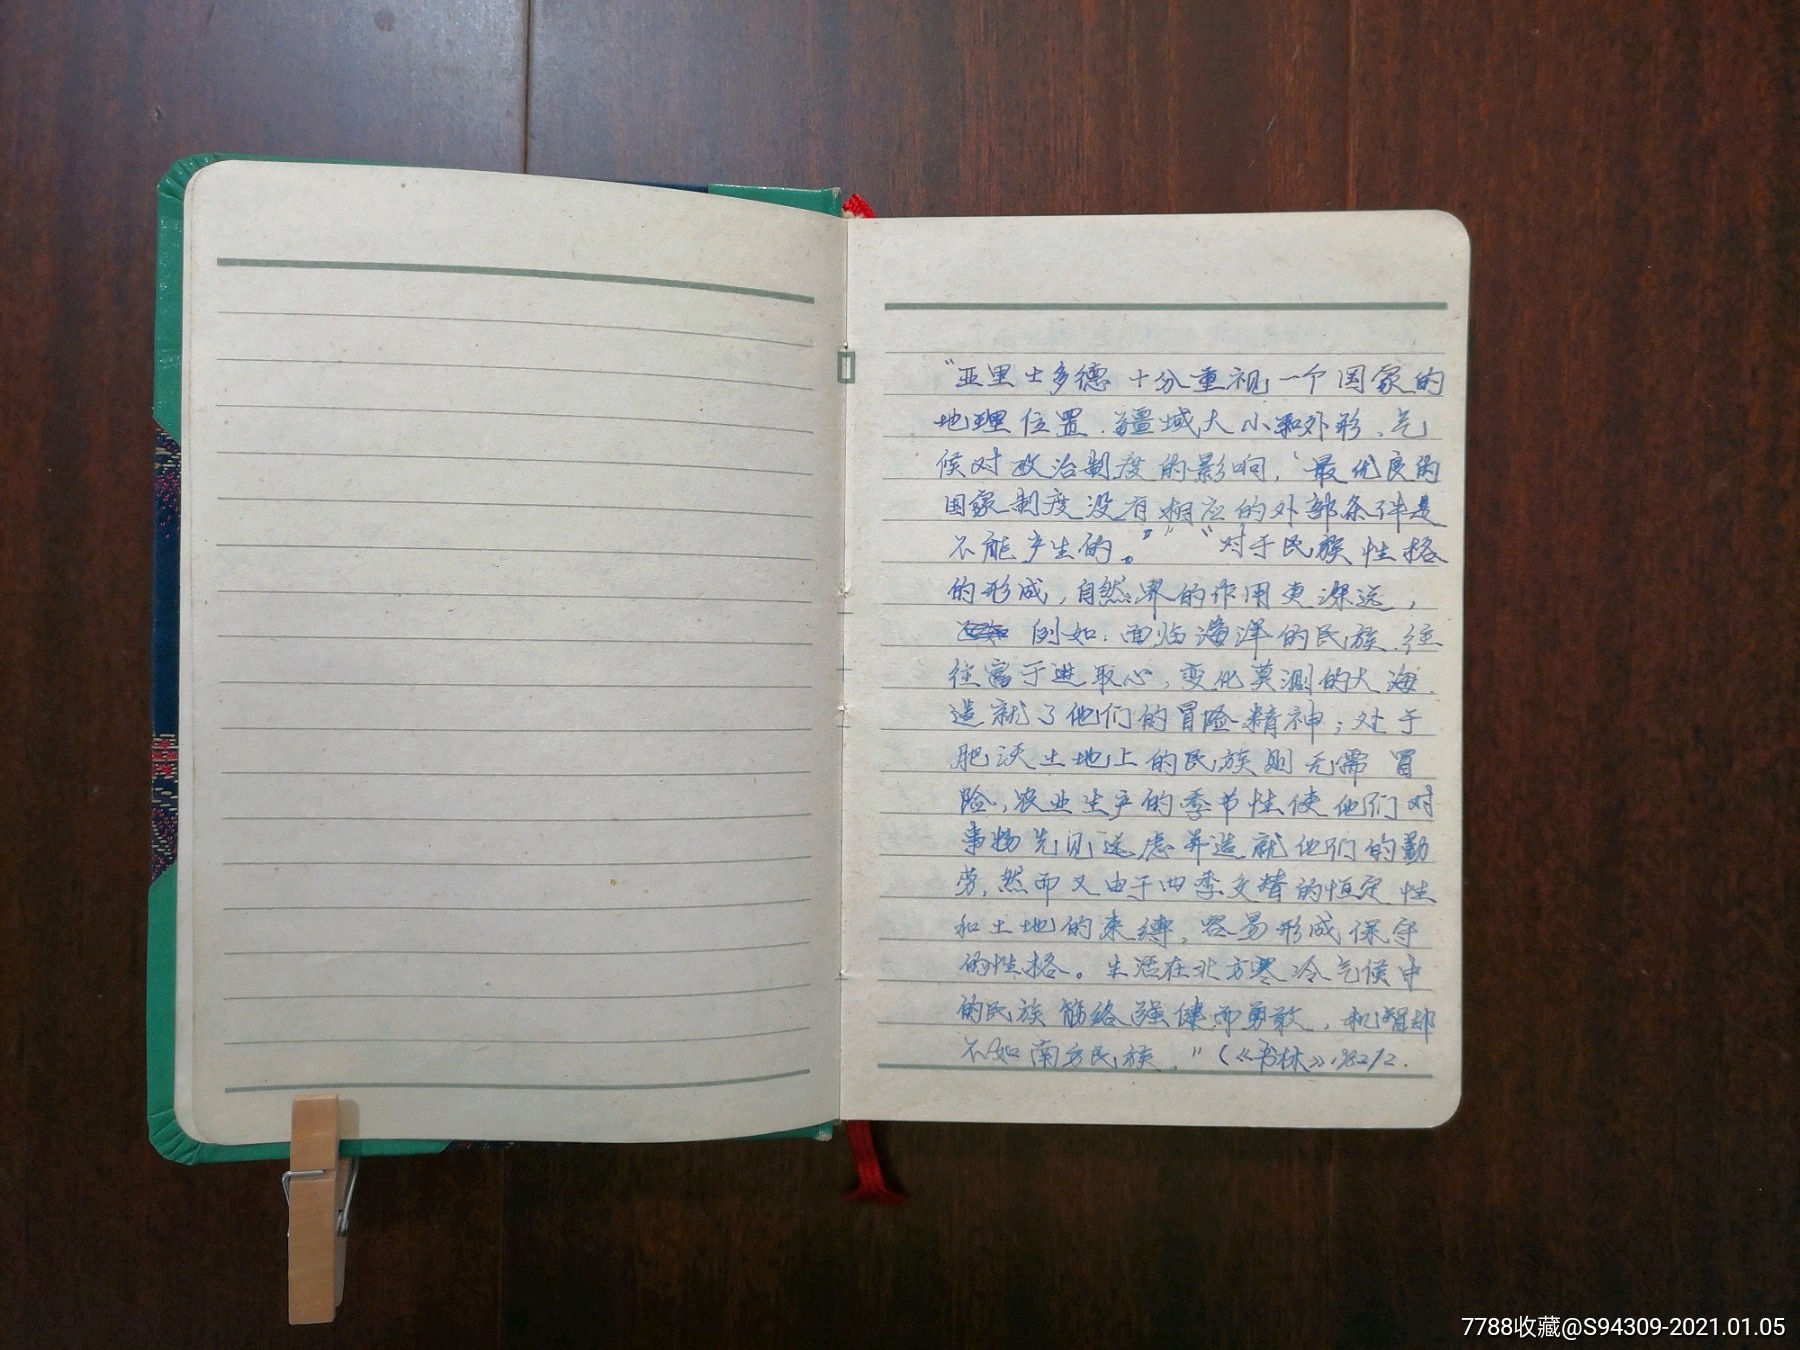 “亚里士多德十分重视一个国家的
地理位置、疆域大小和外形、气
候对政治制度的影响，‘最优良的
国家制度没有相应的外部条件是
不能产生的。’”“对于民族性格
的形成，自然界的作用更深远，
例如：面临海洋的民族，往
往富于进取心，变化莫测的大海
造就了他们的冒险精神；处于
肥沃土地上的民族则无需冒
险，农业生产的季节性使他们对
事物先见远虑并造就他们的勤
劳，然而又由于四季交替的恒定性
和土地的束缚，容易形成保守
的性格。生活在北方寒冷气候中
的民族筋络强健而勇敢，机智却
不如南方民族。”（《书林》1982/2.
7788收藏@S94309-2021.01.05